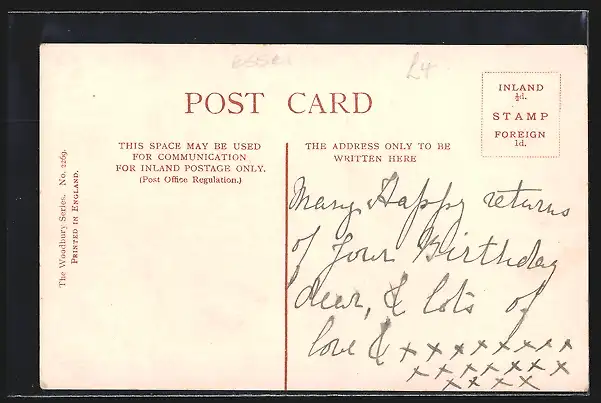 essex
£4
POST CARD
INLAND
½d.
STAMP
FOREIGN
1d.
THIS SPACE MAY BE USED
FOR COMMUNICATION
FOR INLAND POSTAGE ONLY.
(Post Office Regulation.)
THE ADDRESS ONLY TO BE
WRITTEN HERE
The Woodbury Series. No. 2269.
PRINTED IN ENGLAND.
Many Happy returns
of your Birthday
dear, & lots of
love & x x x x x x x x x
x x x x x x x
x x x x